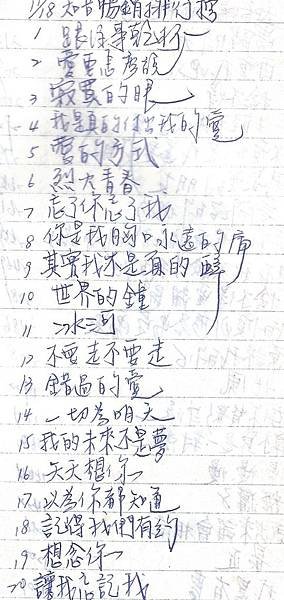 1/18 知音暢銷排行榜
1 跟往事乾杯
2 愛要怎麼說
3 寂寞的眼
4 我是真的付出我的愛
5 愛的方式
6 烈火青春
7 忘了你忘了我
8 你是我胸口永遠的痛
9 其實我不是真的醉
10 世界的鐘
11 冰河
12 不要走不要走
13 錯過的愛
14 一切為明天
15 我的未來不是夢
16 天天想你
17 以為你都知道
18 記得我們有約
19 想念你
20 讓我忘記我